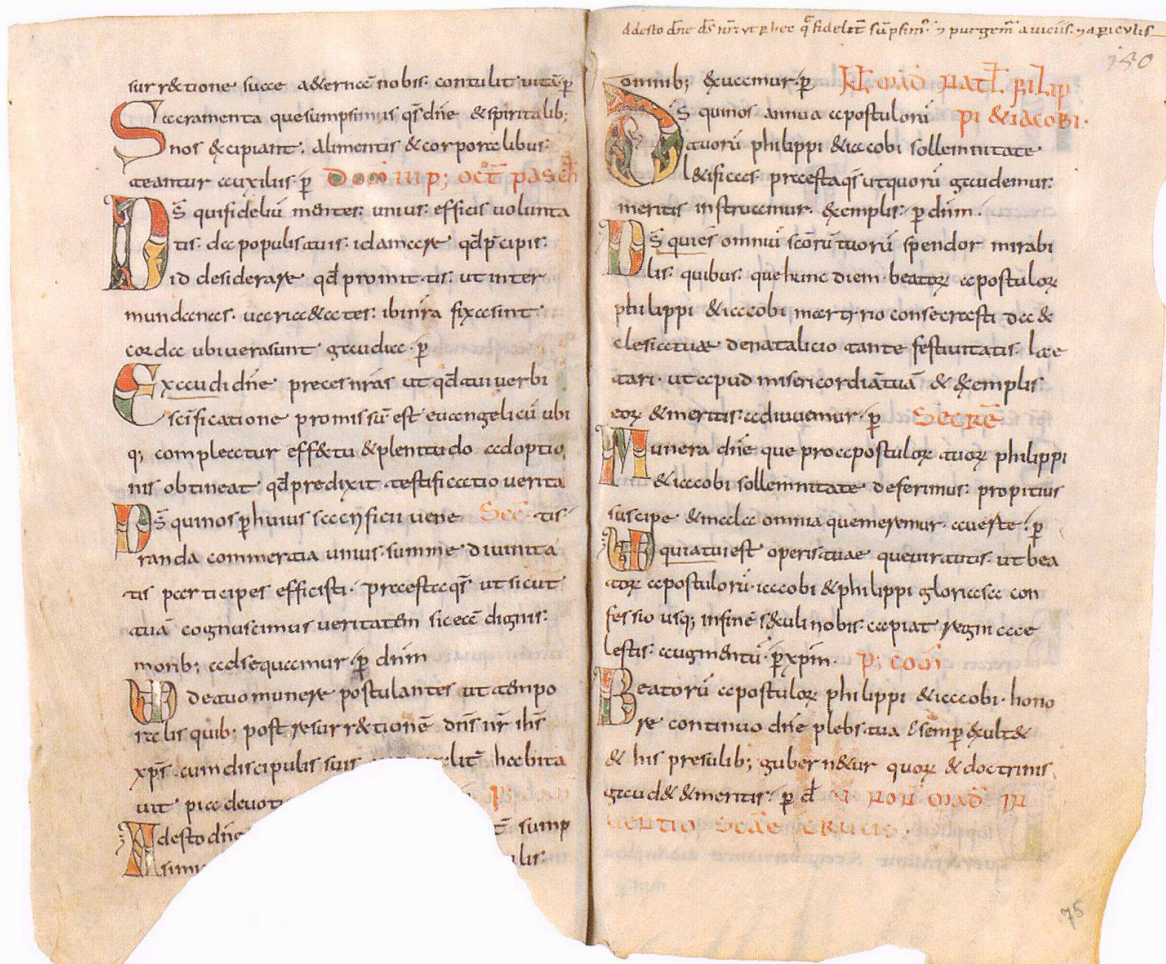 surr&tione sua et aeternae nobis contulit uitā p̄
Sacramenta quesumpsimus q̄s dn̄e & spiritalib;
nos & cipiant. alimentis & corporalibus
teantur auxiliis p̄ Dom iiii p; oct̄ pasch
Ds̄ qui fideliū mentes unius efficis uolunta
tis. da populis tuis id amare qd̄ p̄cipis.
id desiderare qd̄ promittis. ut inter
mundanas uarietates ibi nr̄a fixa sint
corda ubi uera sunt gaudia p̄
Exaudi dn̄e preces nr̄as ut qd̄ tui uerbi
sc̄ificatione promissū est euangelicū ubi
q; compleatur eff&tu & plenitudo adoptio
nis obtineat qd̄ predixit testificatio uerita
Ds̄ qui nos p̄ huius sacrificii uene Sec̄ tis
randa commercia unius summe diuinita
tis participes efficisti. praesta q̄s ut sicut
tuā cognuscimus ueritatem sic eā dignis
morib; adsequamur p̄ dnm
UD de tuo munere postulantes ut tempo
ralis quib; post resurr&tionē dn̄s nr̄ ih̄s
xp̄s cum discipulis suis habita
uit pia deuot
Adesto dn̄e sump
simus
adesto dn̄e ds̄ nr̄ ut p hec q̄ fidelit̄ sūpsim' & purgem̄ a uiciis & a periculis
150
omnib; exuamur p̄ Kl̄ mad̄ nat̄l filip
Ds̄ qui nos annua apostulorū pi & iacobi.
tuorū philippi & iacobi sollemnitate
l&ificas praesta q̄s ut quorū gaudemus
meritis instruamur. exemplis. p̄ dnm.
Ds̄ qui es omniū sc̄orū tuorū spendor mirabi
lis. quibus que hunc diem beator̄ apostulor̄
philippi & iacobi martyrio consecrasti da &
clesiae tuae de natalicio tante festiuitatis. lae
tari. ut apud misericordiā tuā & exemplis
eor̄ & meritis adiuuemur p̄ Secrē
Munera dn̄e que pro apostulor̄ tuor̄ philippi
& iacobi sollemnitate deferimus propitius
suscipe & mala omnia que meremur auerte p̄
UD quia tui est operis tuae que uirtutis. ut bea
tor̄ apostulorū iacobi & philippi gloriosa con
fessio usq; in finē sæculi nobis capiat regni cae
lestis augmentū p̄ xpm̄. p; com̄
Beatorū apostulor̄ philippi & iacobi. hono
re continuo dn̄e plebs tua & semp̄ exult&
& his presulib; gubern&ur quor̄ & doctrinis
gaud& & meritis. p̄ d̄ V non mad̄ in
uentio scāe crucis.
75